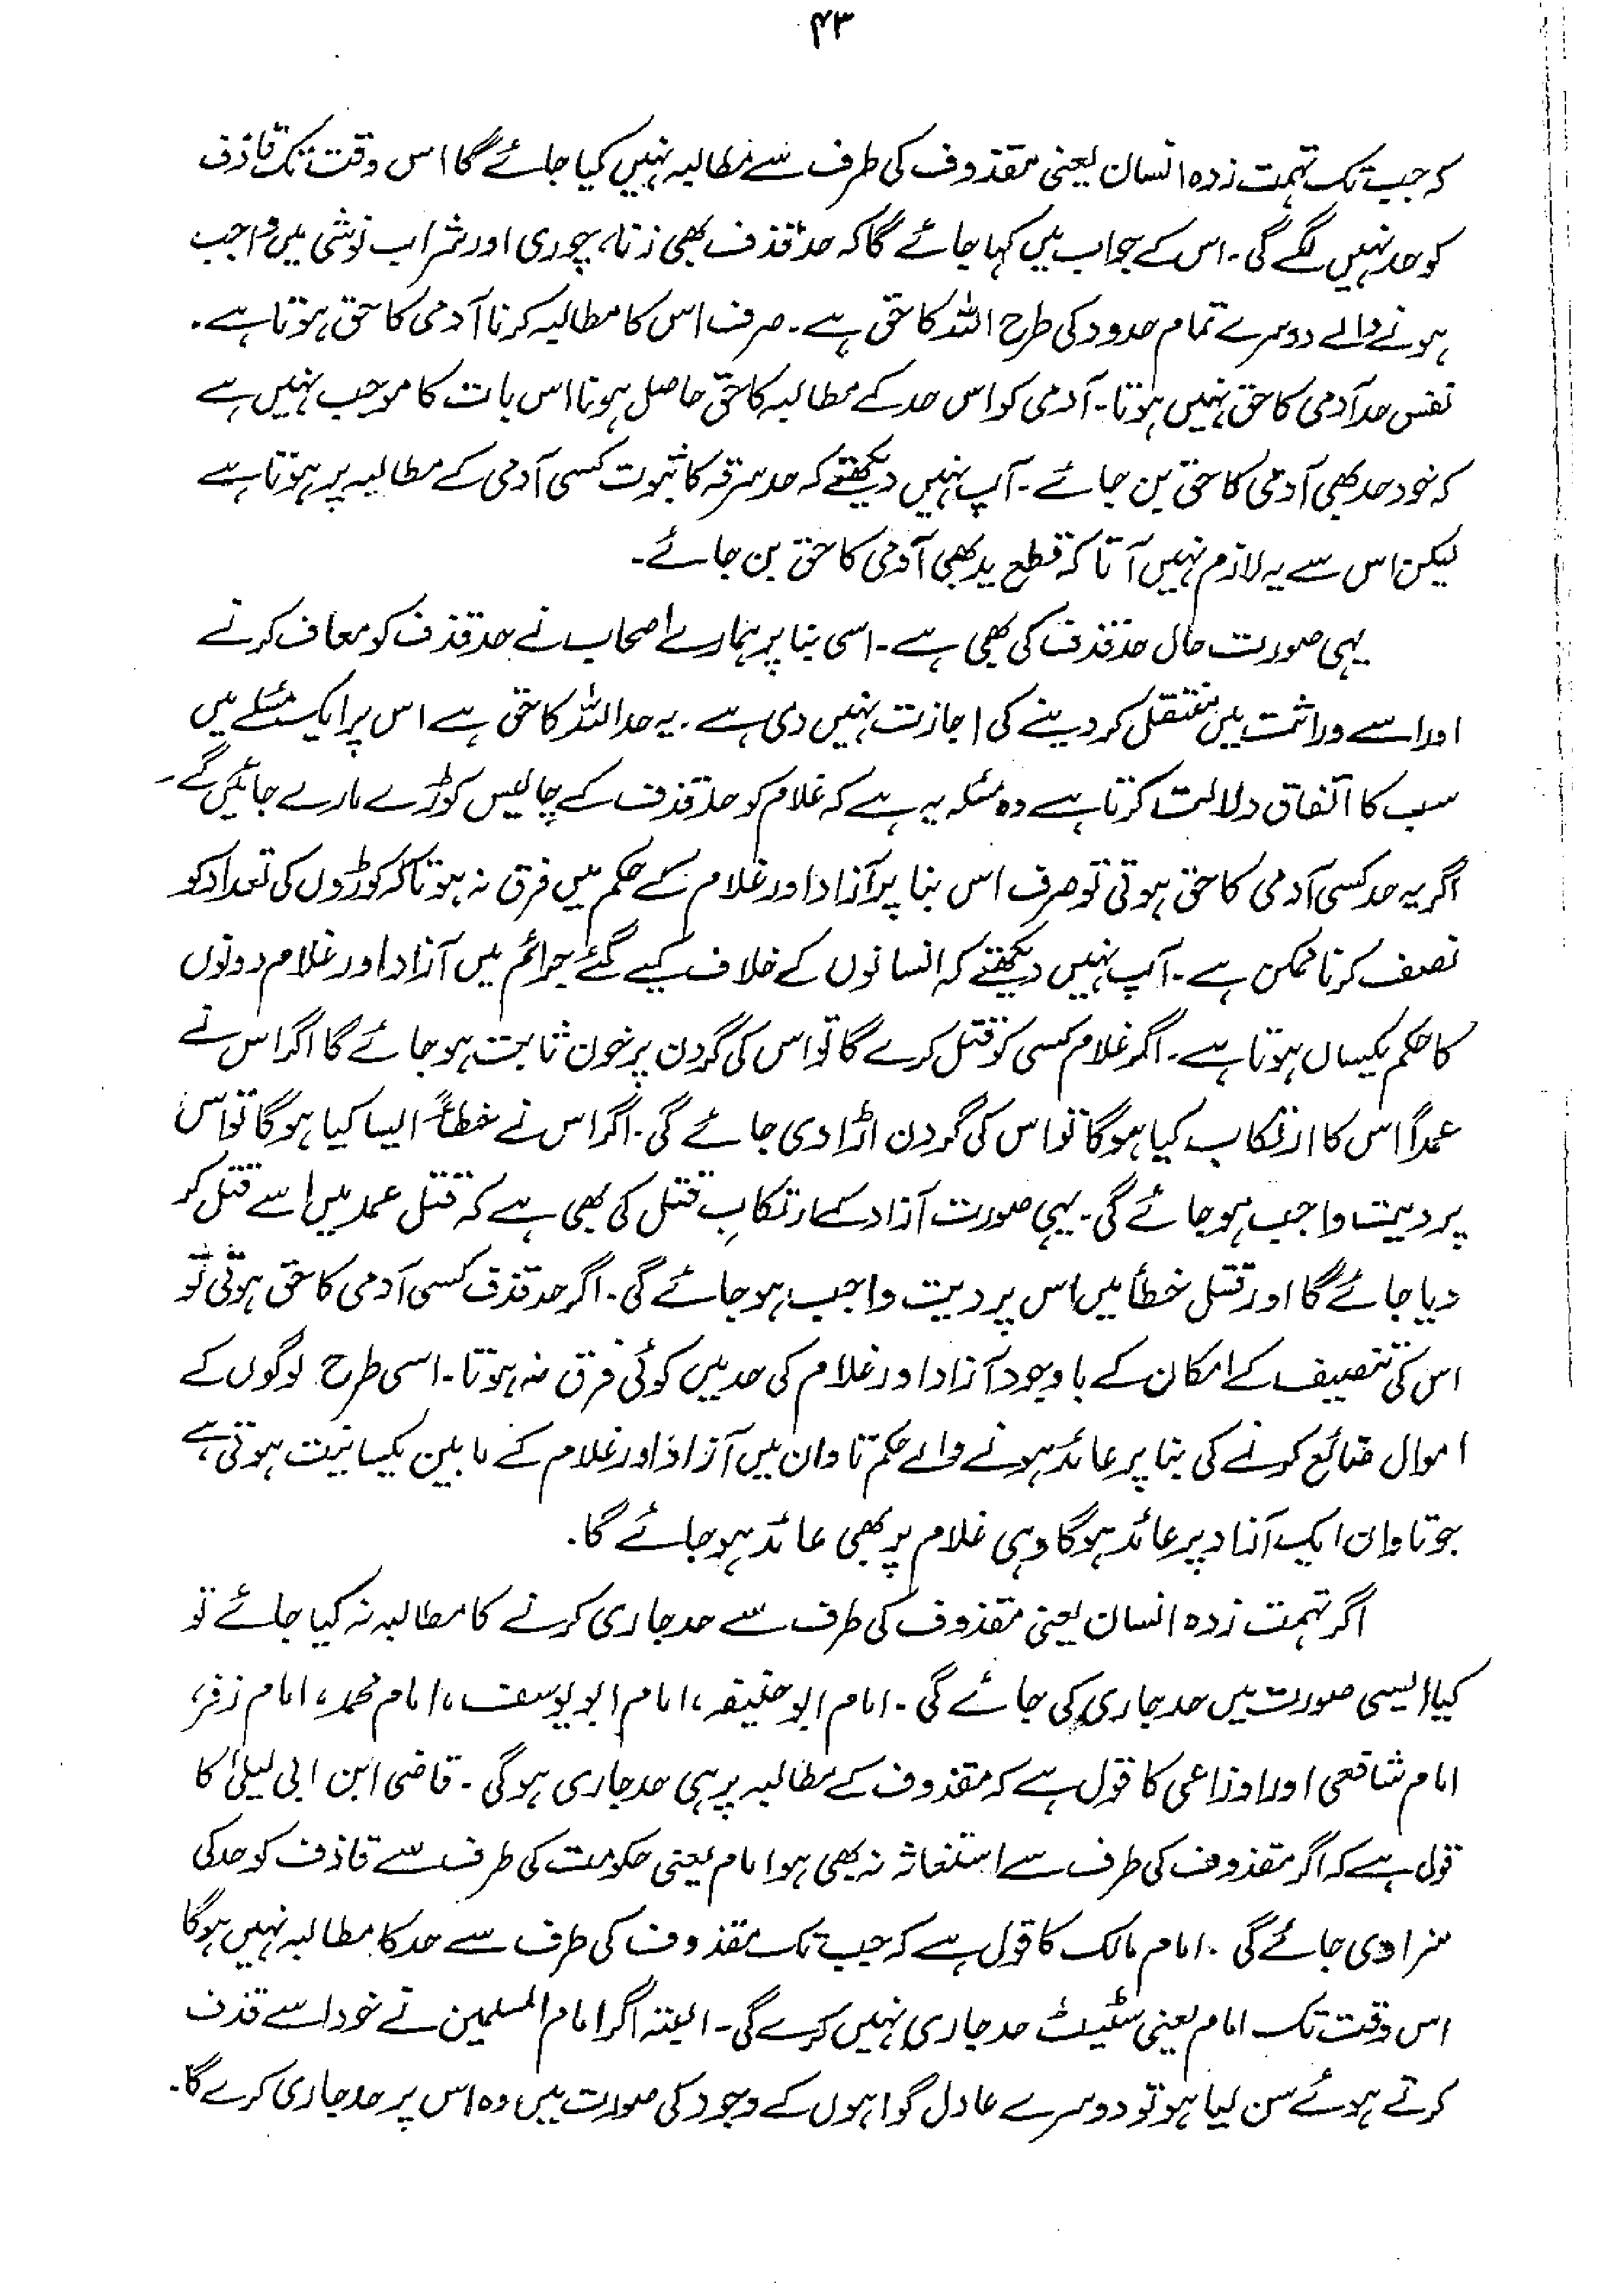 ۴۳
کہ جب تک تہمت زدہ انسان یعنی مقذوف کی طرف سے مطالبہ نہیں کیا جائے گا اس وقت تک قاذف
کو حد نہیں لگے گی۔ اس کے جواب میں کہا جائے گا کہ حد قذف بھی زنا، چوری اور شراب نوشی میں واجب
ہونے والے دوسرے تمام حدود کی طرح اللہ کا حق ہے۔ صرف اس کا مطالبہ کرنا آدمی کا حق ہوتا ہے۔
نفس حد آدمی کا حق نہیں ہوتا۔ آدمی کو اس حد کے مطالبہ کا حق حاصل ہونا اس بات کا موجب نہیں ہے
کہ خود حد بھی آدمی کا حق بن جائے۔ آپ نہیں دیکھتے کہ حد سرقہ کا ثبوت کسی آدمی کے مطالبہ پر ہوتا ہے
لیکن اس سے یہ لازم نہیں آتا کہ قطع ید بھی آدمی کا حق بن جائے۔
یہی صورت حال حد قذف کی بھی ہے۔ اسی بنا پر ہمارے اصحاب نے حد قذف کو معاف کرنے
اور اسے وراثت میں منتقل کر دینے کی اجازت نہیں دی ہے۔ یہ حد اللہ کا حق ہے اس پر ایک مسئلے میں
سب کا اتفاق دلالت کرتا ہے وہ مسئلہ یہ ہے کہ غلام کو حد قذف کے چالیس کوڑے مارے جائیں گے۔
اگر یہ حد کسی آدمی کا حق ہوتی تو صرف اس بنا پر آزاد اور غلام کے حکم میں فرق نہ ہوتا کہ کوڑوں کی تعداد کو
نصف کرنا ممکن ہے۔ آپ نہیں دیکھتے کہ انسانوں کے خلاف کیے گئے جرائم میں آزاد اور غلام دونوں
کا حکم یکساں ہوتا ہے۔ اگر غلام کسی کو قتل کرے گا تو اس کی گردن پر خون ثابت ہو جائے گا اگر اس نے
عمداً اس کا ارتکاب کیا ہوگا تو اس کی گردن اڑا دی جائے گی۔ اگر اس نے خطأً ایسا کیا ہوگا تو اس
پر دیت واجب ہو جائے گی۔ یہی صورت آزاد کے ارتکابِ قتل کی بھی ہے کہ قتل عمد میں اسے قتل کر
دیا جائے گا اور قتل خطأ میں اس پر دیت واجب ہو جائے گی۔ اگر حد قذف کسی آدمی کا حق ہوتی تو
اس کی تنصیف کے امکان کے باوجود آزاد اور غلام کی حد میں کوئی فرق نہ ہوتا۔ اسی طرح لوگوں کے
اموال ضائع کرنے کی بنا پر عائد ہونے والے حکم تاوان میں آزاد اور غلام کے مابین یکسانیت ہوتی ہے
جو تاوان ایک آزاد پر عائد ہوگا وہی غلام پر بھی عائد ہو جائے گا۔
اگر تہمت زدہ انسان یعنی مقذوف کی طرف سے حد جاری کرنے کا مطالبہ نہ کیا جائے تو
کیا ایسی صورت میں حد جاری کی جائے گی۔ امام ابو حنیفہ، امام ابو یوسف، امام محمد، امام زفر،
امام شافعی اور اوزاعی کا قول ہے کہ مقذوف کے مطالبہ پر ہی حد جاری ہوگی۔ قاضی ابن ابی لیلیٰ کا
قول ہے کہ اگر مقذوف کی طرف سے استغاثہ نہ بھی ہو امام یعنی حکومت کی طرف سے قاذف کو حد کی
سزا دی جائے گی۔ امام مالک کا قول ہے کہ جب تک مقذوف کی طرف سے حد کا مطالبہ نہیں ہوگا
اس وقت تک امام یعنی سٹیٹ حد جاری نہیں کرے گی۔ البتہ اگر امام المسلمین نے خود اسے قذف
کرتے ہوئے سن لیا ہو تو دوسرے عادل گواہوں کے وجود کی صورت میں وہ اس پر حد جاری کرے گا۔